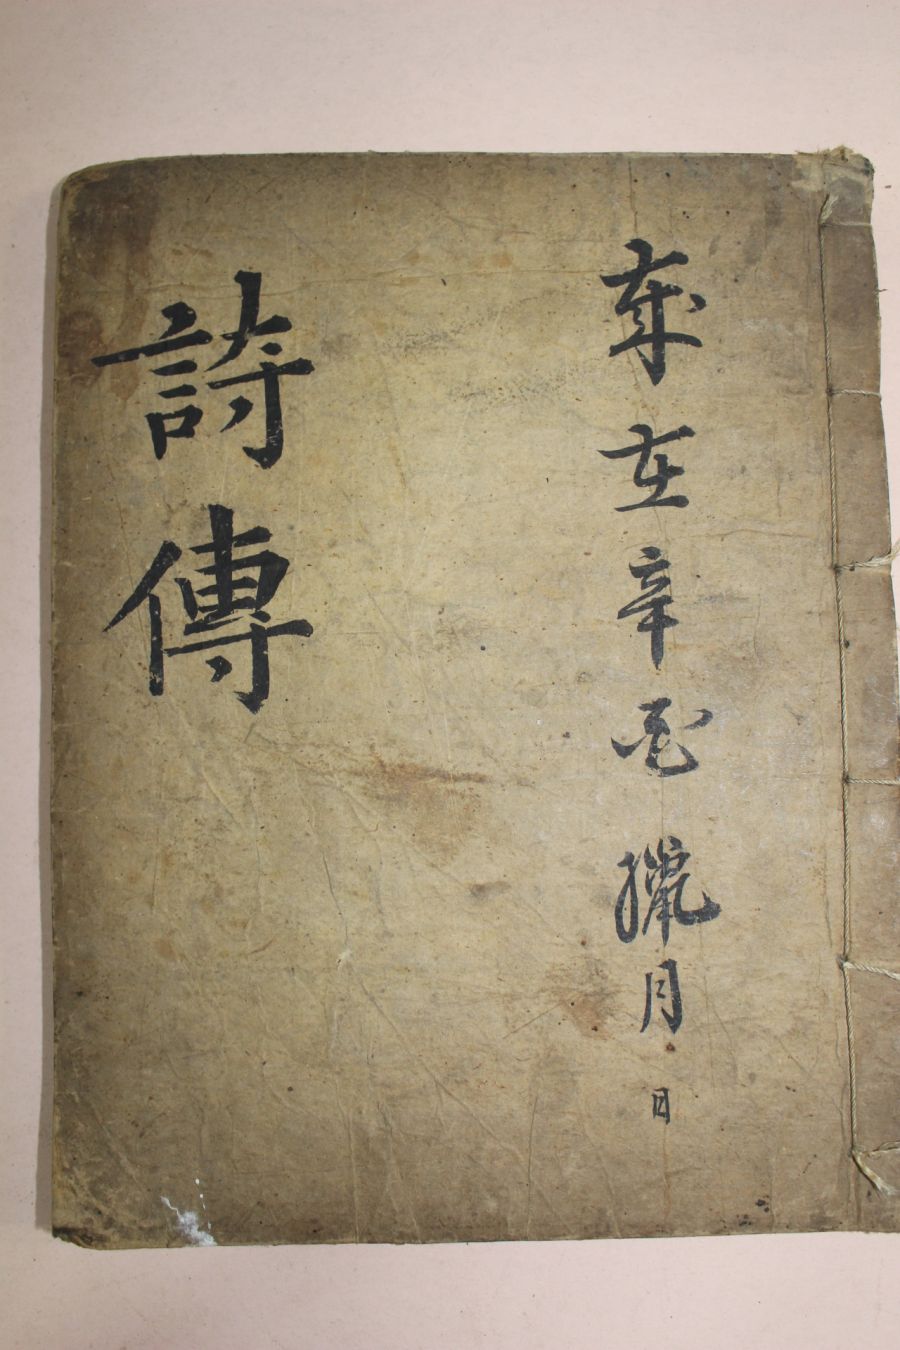 歲在辛臘月 日
詩傳